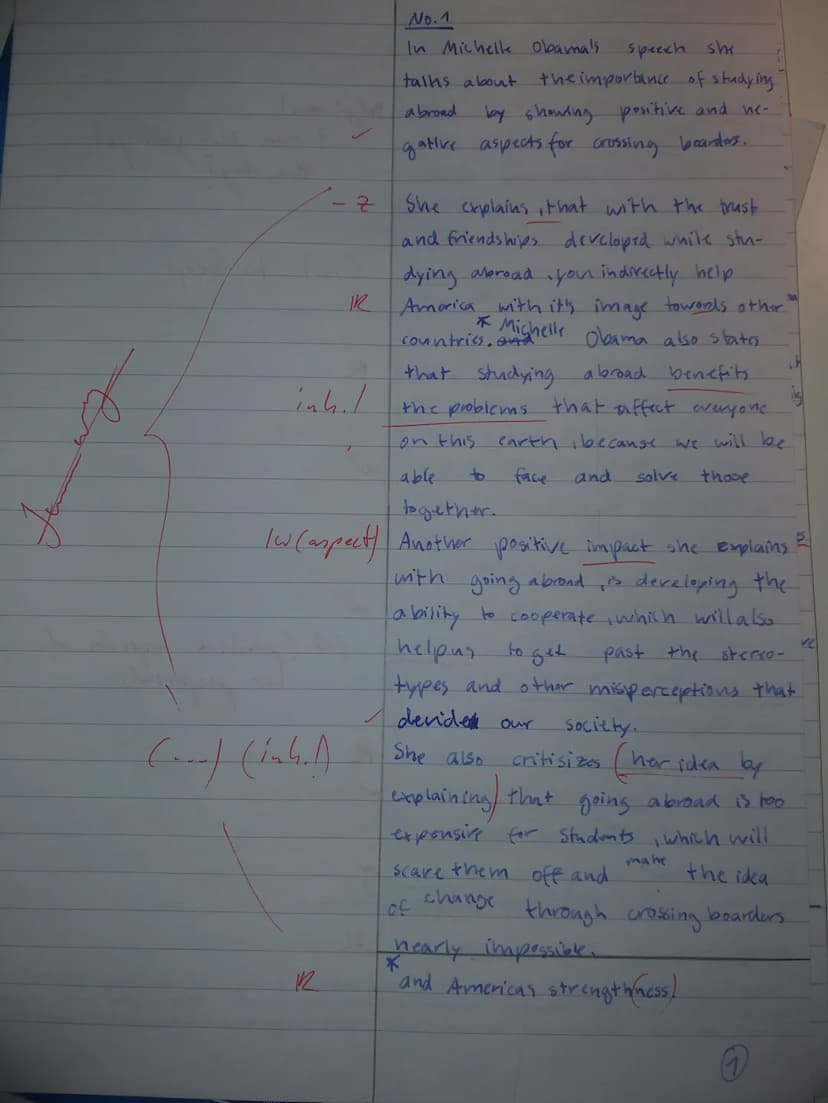 No. 1
In Michelle Obama's speech she
talks about the importance of studying
abroad by showing positive and ne-
gative aspects for crossing boarders.
- Z
She explains, that with the trust
and friendships developed while stu-
dying abroad, you indirectly help
R
America with it's image towards other
countries.* and Michelle Obama also states
that studying abroad benefits
inh.!
the problems that affect everyone
on this earth, because we will be
able to face and solve those
together.
lw (aspect)
Another positive impact she explains
with going abroad, is developing the
ability to cooperate, which will also
help us to get past the stereo-
types and other misperceptions that
devide our society.
(....) (inh.!)
She also critisizes (her idea by
explaining) that going abroad is too
expensive for students, which will
scare them off and make the idea
of change through crossing boarders
nearly impossible.
R
* and Americas strength(ness)
1